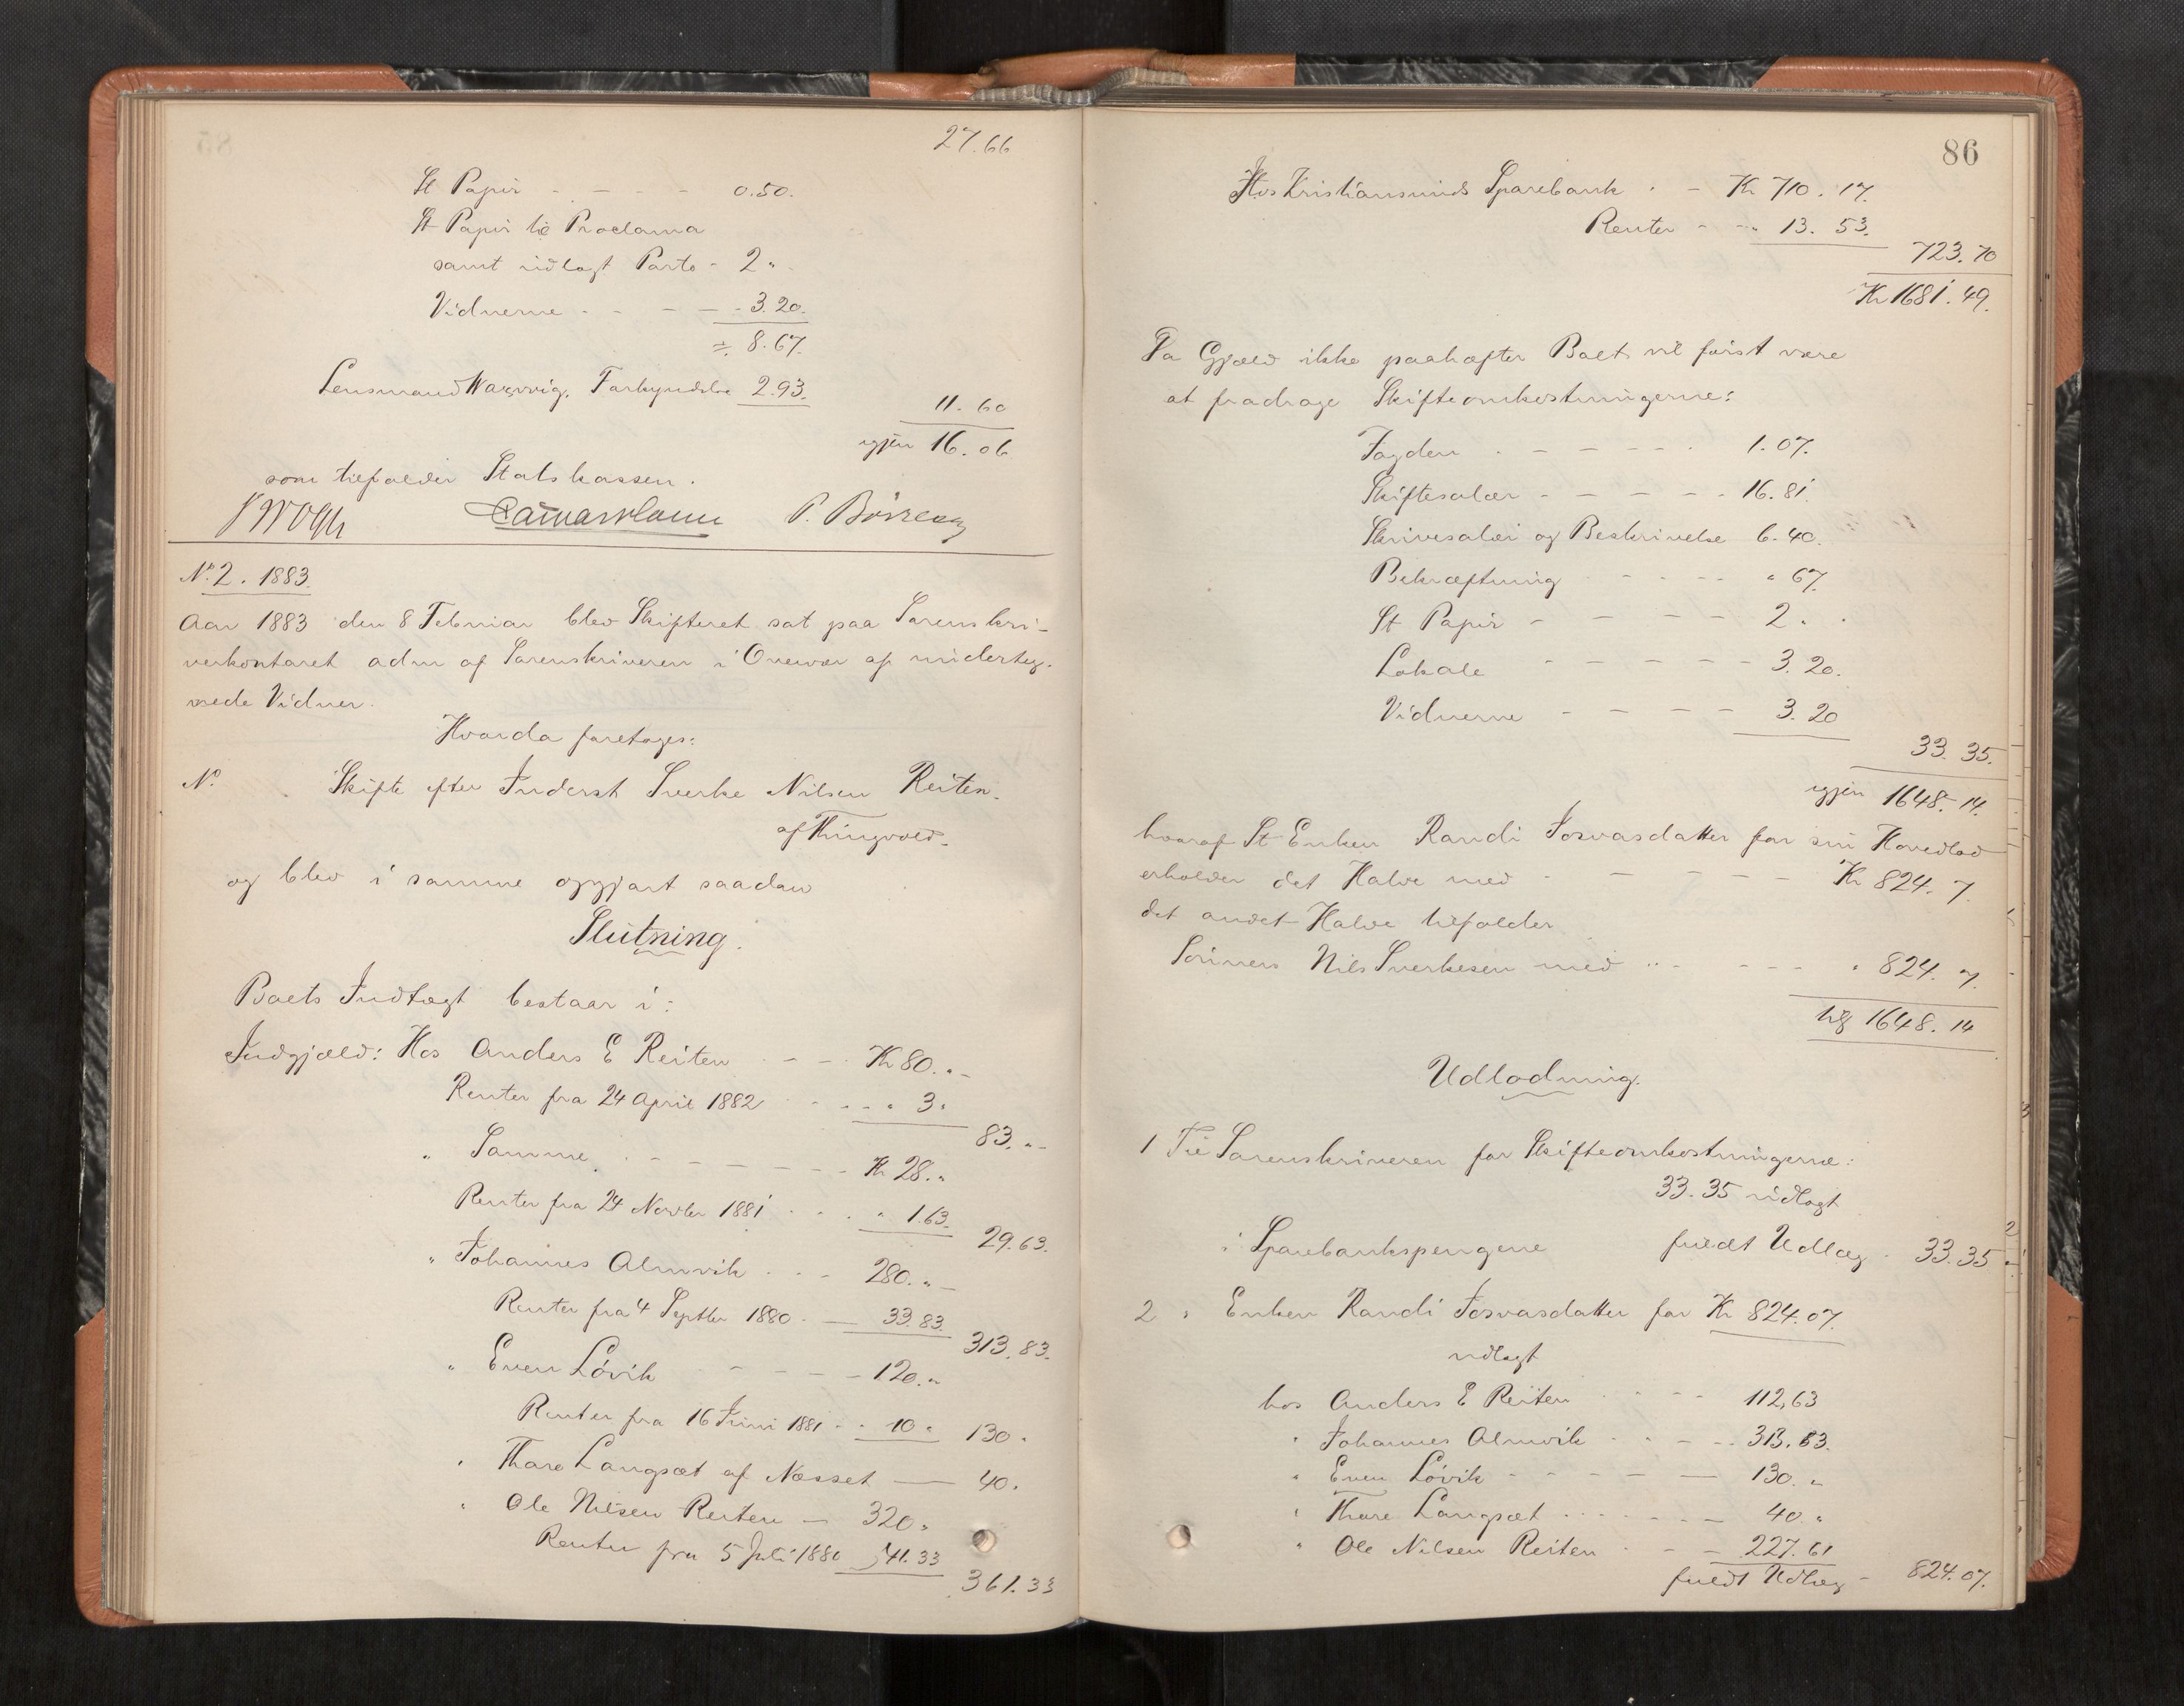 27.66
St Papir - - - - 0.50.
St Papir til Proclama
samt udlagt Porto - 2 "
Vidnerne - - - - 3.20.
÷ 8.67.
Lensmand Forkyndelse 2.93.
11.60
igjen 16.06
som tilfalder Statskassen.
P. Börresen
No 2. 1883.
Aar 1883 den 8 Februar blev Skifteret sat paa Sorenskri-
verkontoret adm af Sorenskriveren i Overvær af underteg-
nede Vidner.
Hvorda foretoges:
No. Skifte efter Inderst Sverke Nilsen Reiten.
af Thingvold.
og blev i samme opgjort saadan
Slutning.
Boets Indtægt bestaar i:
Indgjæld: Hos Anders E Reiten - - - Kr 80. " -
Renter fra 24 April 1882 - - - " 3 "
83. " -
" Samme - - - - - - Kr 28. "
Renter fra 24 Novbr 1881 - - - " 1.63.
29.63.
" Johannes Almvik - - - 280. " -
Renter fra 4 Septbr 1880 - - 33.83.
313.83.
" Even Lövik - - - - 120. "
Renter fra 16 Juni 1881 - - 10 " 130 "
" Thore Langsæt af Næsset - 40 "
" Ole Nilsen Reiten - 320 "
Renter fra 5 Juli 1880 41.33
361.33
86
Hos Kristiansunds Sparebank - - Kr 710.17.
Renter - - - 13.53.
723.70
Kr 1681.49.
Da Gjæld ikke paahæfter Boet vil først være
at fradrage Skifteomkostningerne:
Fogden - - - - - 1.07.
Skiftesalær - - - - - 16.81.
Skrivesalær og Beskrivelse 6.40.
Bekræftning - - - - " 67.
St Papir - - - - 2 "
Lokale - - - - - 3.20.
Vidnerne - - - - 3.20
33.35.
igjen 1648.14.
hvoraf St Enken Randi Josvasdatter for sin Hovedlod
erholder det Halve med - - - - - Kr 824.7.
det andet Halve tilfalder
Sönnen Nils Sverkesen med - - - - " 824.7.
tilf 1648.14
Udlodning.
1 Til Sorenskriveren for Skifteomkostningerne:
33.35 udlagt
i Sparebankspengene fuldt Udlæg - 33.35
2 " Enken Randi Josvasdatter for Kr 824.07.
udlagt
hos Anders E Reiten - - - 112,63
" Johannes Almvik - - - 313.83.
" Even Lövik - - - - - 130. "
" Thore Langsæt - - - - 40 "
" Ole Nilsen Reiten - - - 227.61
fuldt Udlæg - 824.07.